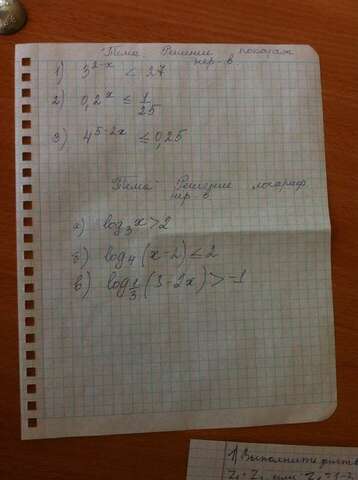 Тема Решение показат
нер-в
1) 3^{2-x} < 27
2) 0,2^x ≤ 1/25
3) 4^{5-2x} ≤ 0,25
Тема Решение логариф
нер-в
а) log_3 x > 2
б) log_4 (x-2) ≤ 2
в) log_{1/3} (3-2x) > -1
1) Выполнить